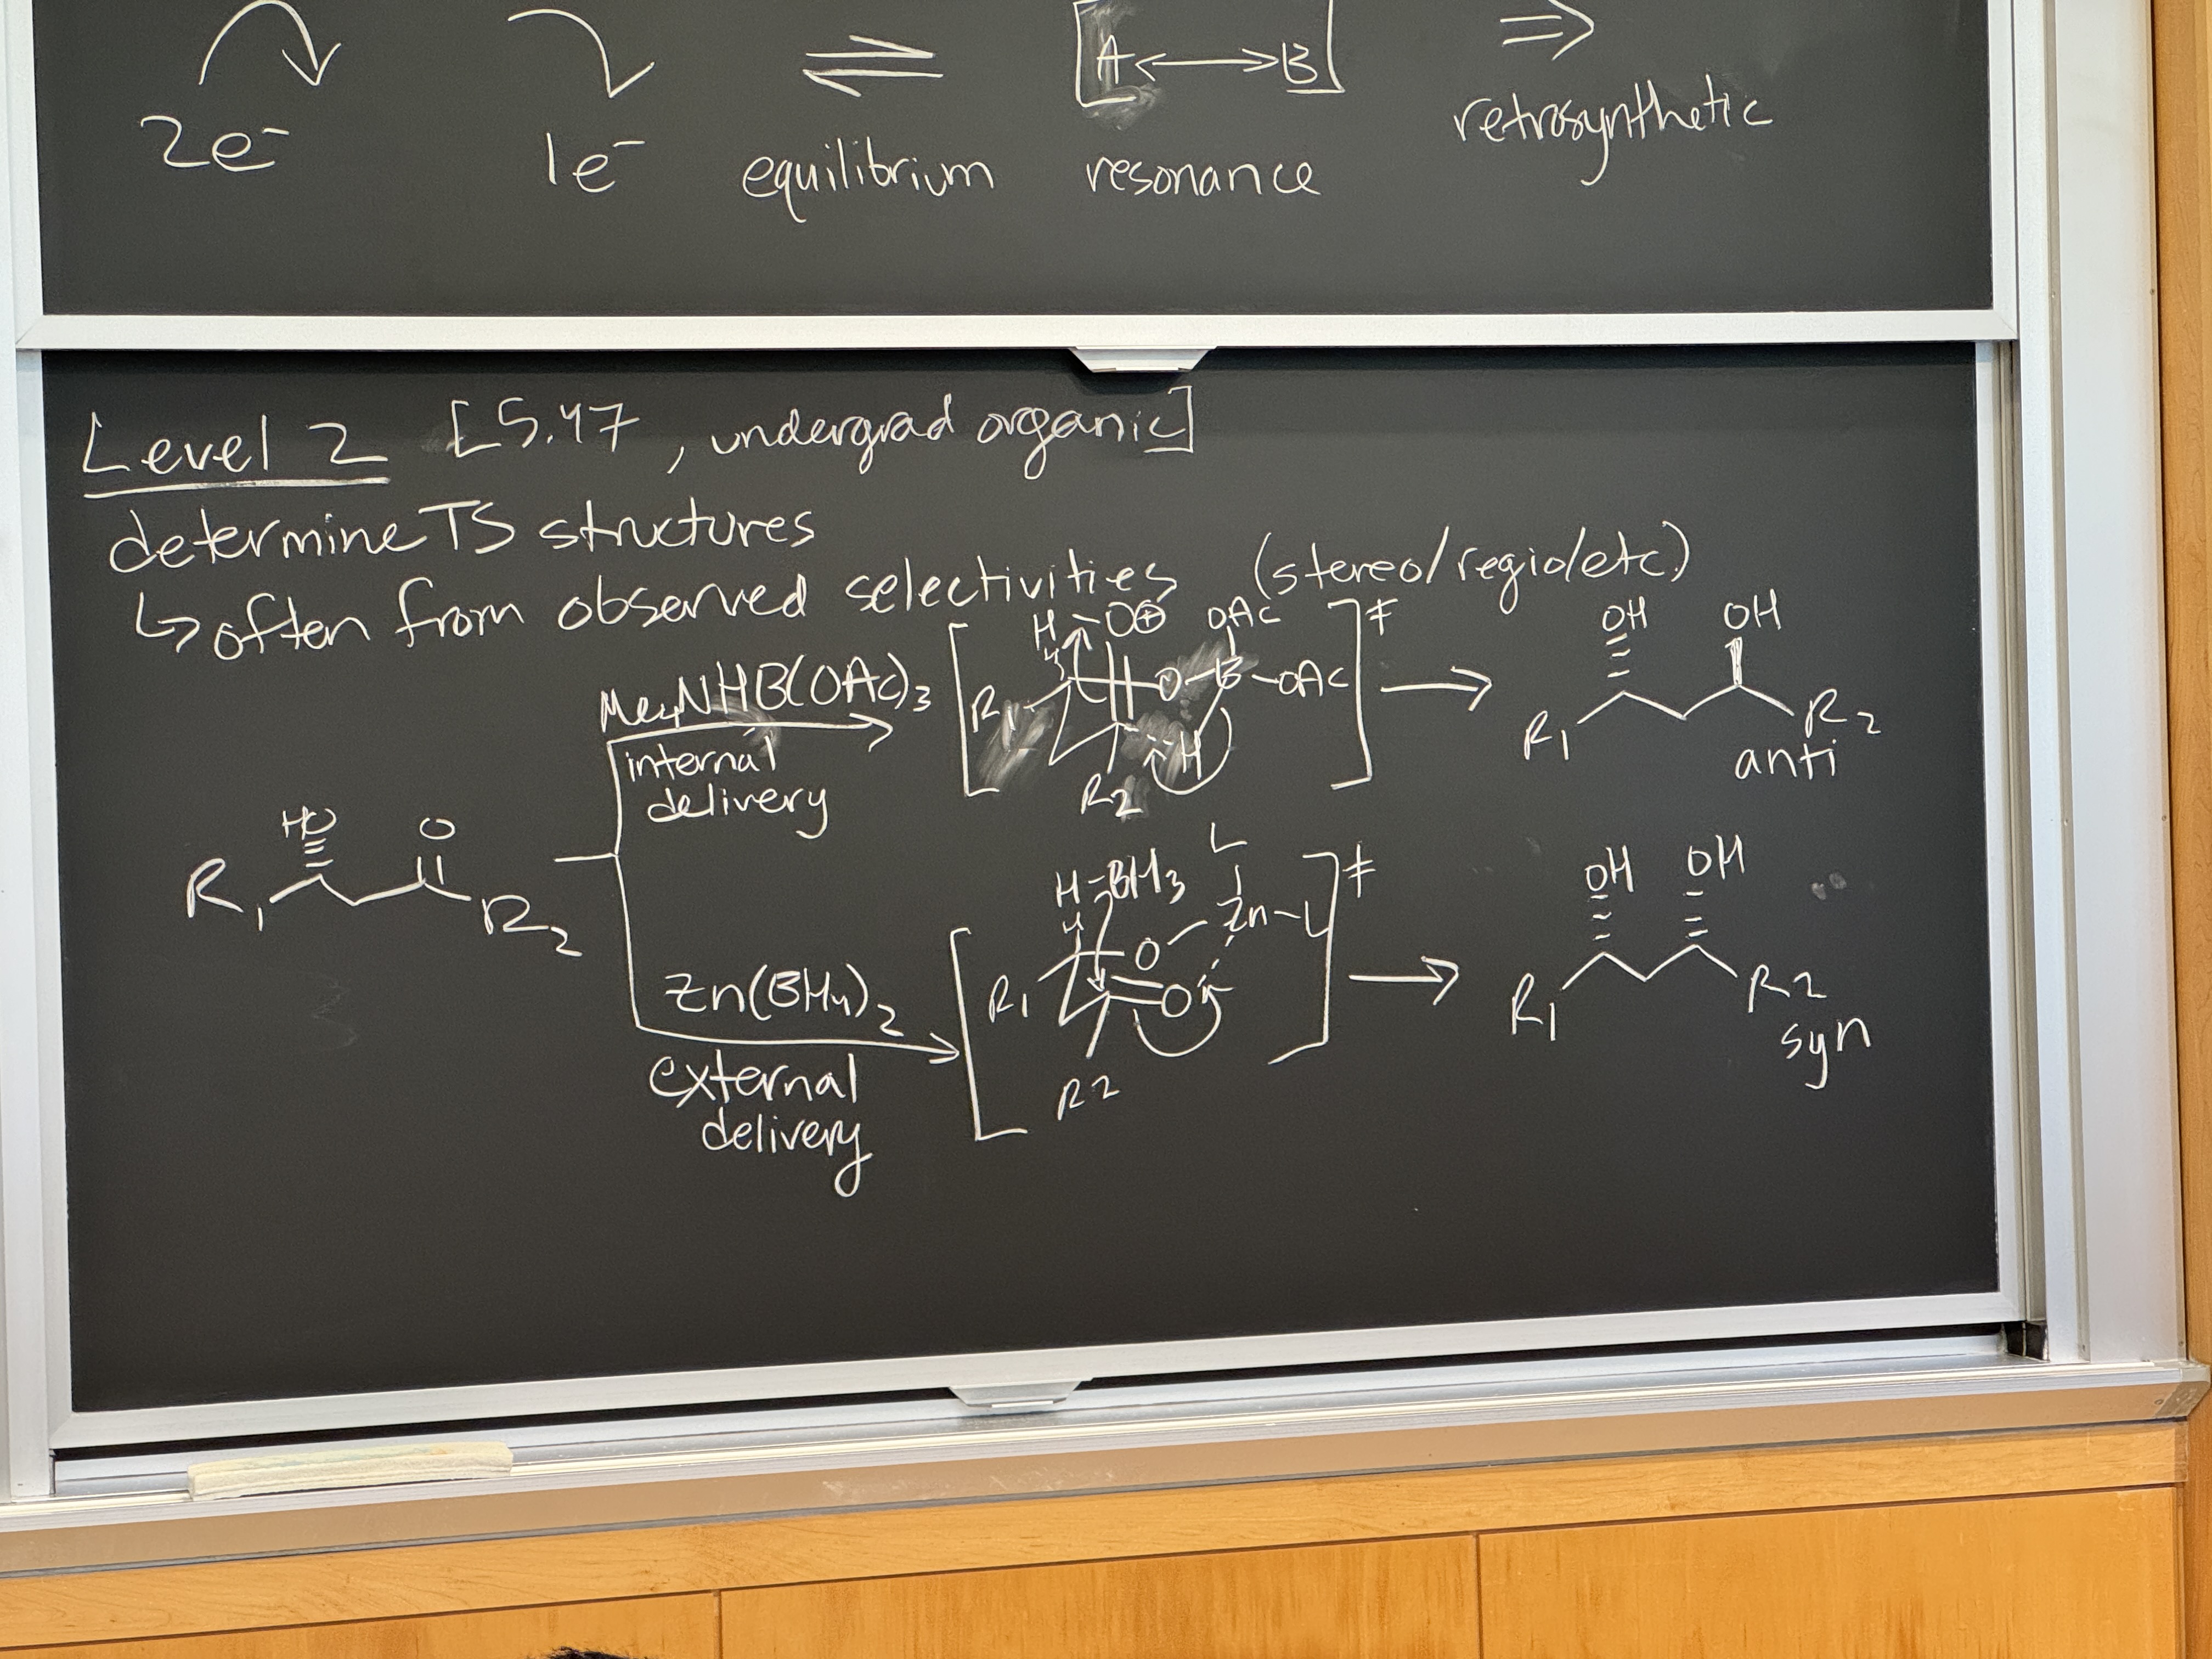 2e⁻ 1e⁻ equilibrium [A ⟷ B] resonance ⇒ retrosynthetic
Level 2 [5.47, undergrad organic]
determine TS structures
↳ often from observed selectivities (stereo/regio/etc.)
Me₄NHB(OAc)₃
internal
delivery
H-O⊕ OAc
H
R₁ O-B-OAc
H
R₂
‡
OH OH
R₁ R₂
anti
HO O
R₁ R₂
Zn(BH₄)₂
external
delivery
L
H-BH₃
H Zn-L
O
R₁ O
R2
‡
OH OH
R₁ R2
syn